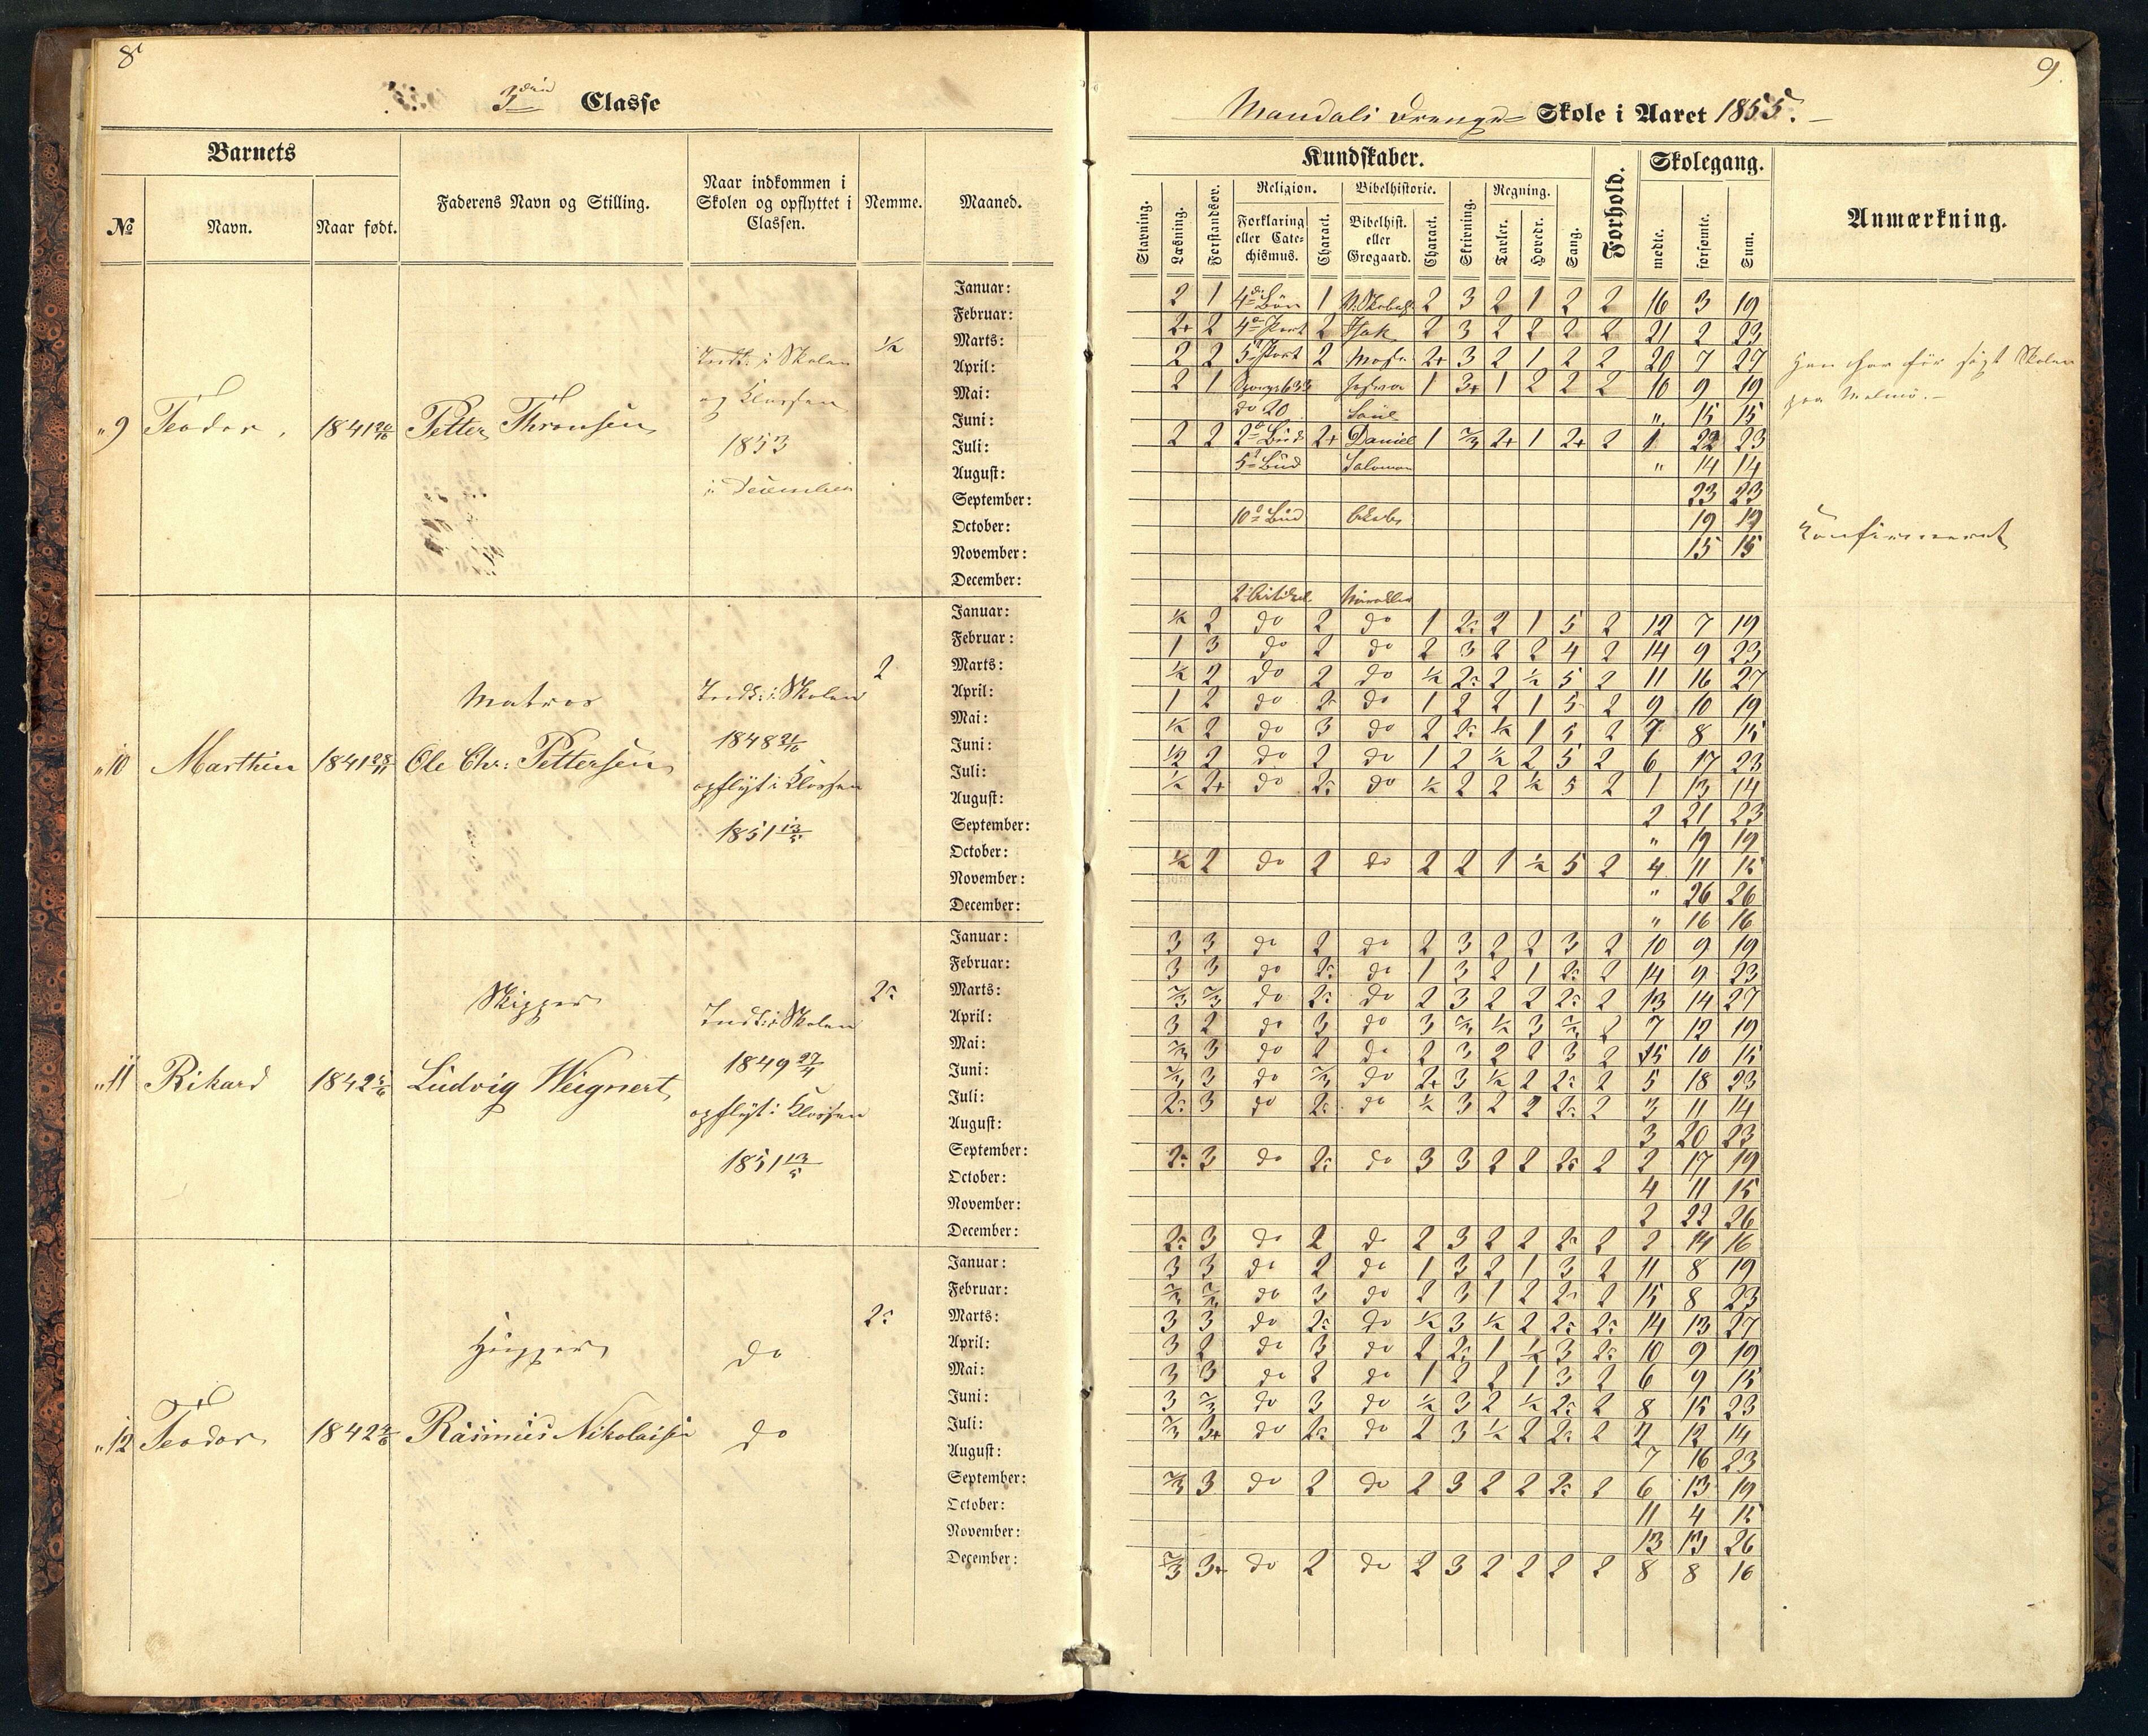 8
3die Classe
Barnets
№
Navn.
Naar født.
Faderens Navn og Stilling.
Naar indkommen i Skolen og opflyttet i Classen.
Nemme.
Maaned.
"9 Teodor, 1841 20/10 Petter Thronsen
Indk: i Skolen
og Klassen
1853
i December
1/2
Januar:
Februar:
Marts:
April:
Mai:
Juni:
Juli:
August:
September:
October:
November:
December:
Matros
"10 Marthin 1841 28/11 Ole Chr: Pettersen
Indk: i Skolen
1848
opflyt i Klassen
1851 13/5
2
Januar:
Februar:
Marts:
April:
Mai:
Juni:
Juli:
August:
September:
October:
November:
December:
Skipper
"11 Rikard 1842 Ludvig Weignert
Indk: i Skolen
1849 27/4
opflyt i Klassen
1851 13/5
Januar:
Februar:
Marts:
April:
Mai:
Juni:
Juli:
August:
September:
October:
November:
December:
"12 Teodor 1842 Rasmus Nikolaisen
do
do
Januar:
Februar:
Marts:
April:
Mai:
Juni:
Juli:
August:
September:
October:
November:
December:
9.
Mandals Drenge- Skole i Aaret 1855.
Kundskaber.
Forhold.
Skolegang.
Anmærkning.
Stavning.
Læsning.
Forstandsøv.
Religion.
Forklaring eller Catechismus.
Charact.
Bibelhistorie.
Bibelhist. eller Grogaard.
Charact.
Skrivning.
Regning.
Tavler.
Hovedr.
Sang.
mødte.
forsømte.
Sum.
2 1 4de Bøn 1 2 3 2 1 2 2 16 3 19
2+ 2 4de Part 2 Isak 2 3 2 2 2 2 21 2 23
2 2 5te Part 2 Mose 2+ 3 2 1 2 2 20 7 27
2 1 633 Josva 1 3+ 1 2 2 2 10 9 19
do 20 Saul " 15 15
2 2 2det Bud 2+ Daniel 1 2/3 2+ 1 2+ 2 1 22 23
5te Bud Salomon " 14 14
23 23
10de Bud 19 19
15 15
Han har før søgt Skolen
paa Malmø.
Konfirmeret
2 Artikel Mirakler
1/2 2 do 2 do 1 2 1 5 2 12 7 19
1 3 do 2 do 2 3 2 2 4 2 14 9 23
1/2 2 do 2 do 1/2 2 1/2 5 2 11 16 27
1 2 do do 1 2 2 1 5 2 9 10 19
1/2 2 do 3 do 2 1/2 1 5 2 7 8 15
1/2 2 do 2 do 1 2 1/2 2 5 2 6 17 23
1/2 2+ do do 1/2 2 2 1/2 5 2 1 13 14
2 21 23
" 19 19
1/2 2 do 2 do 2 2 1 1/2 5 2 4 11 15
" 26 26
" 16 16
3 3 do 2 do 2 3 2 2 3 2 10 9 19
3 3 do do 1 3 2 1 2 14 9 23
2/3 2/3 do do 2 3 2 2 2 13 14 27
3 2 do 3 do 3 2/3 1/2 3 2/3 2 7 12 19
2/3 3 do 2 do 2 3 2 2 3 2 5 10 15
2/3 3 do 2/3 do 2+ 3 1/2 2 2 5 18 23
3 do do 1/2 3 2 2 2 3 11 14
3 20 23
3 do do 3 3 2 2 2 2 17 19
4 11 15
2 22 26
3 do 2 do 2 3 2 2 2 2 14 16
3 3 do 2 do 1 3 2 1 3 2 11 8 19
2/3 2/3 do 3 do 2 3 1 2 2 15 8 23
3 3 do do 1/2 3 1/2 2 14 13 27
3 2 do 3 do 2 1 1/2 3 10 9 19
3 3 do 2 do 1 2 2 1 3 2 6 9 15
3 2/3 do 3 do 1/2 3 2 1/2 2 8 15 23
2/3 3+ do do 2 3 1/2 2 2 2 12 14
7 16 23
2/3 3 do 2 do 2 3 2 2 2 6 13 19
11 4 15
13 13 26
2/3 3+ do 2 do 2 3 2 2 2 2 8 8 16